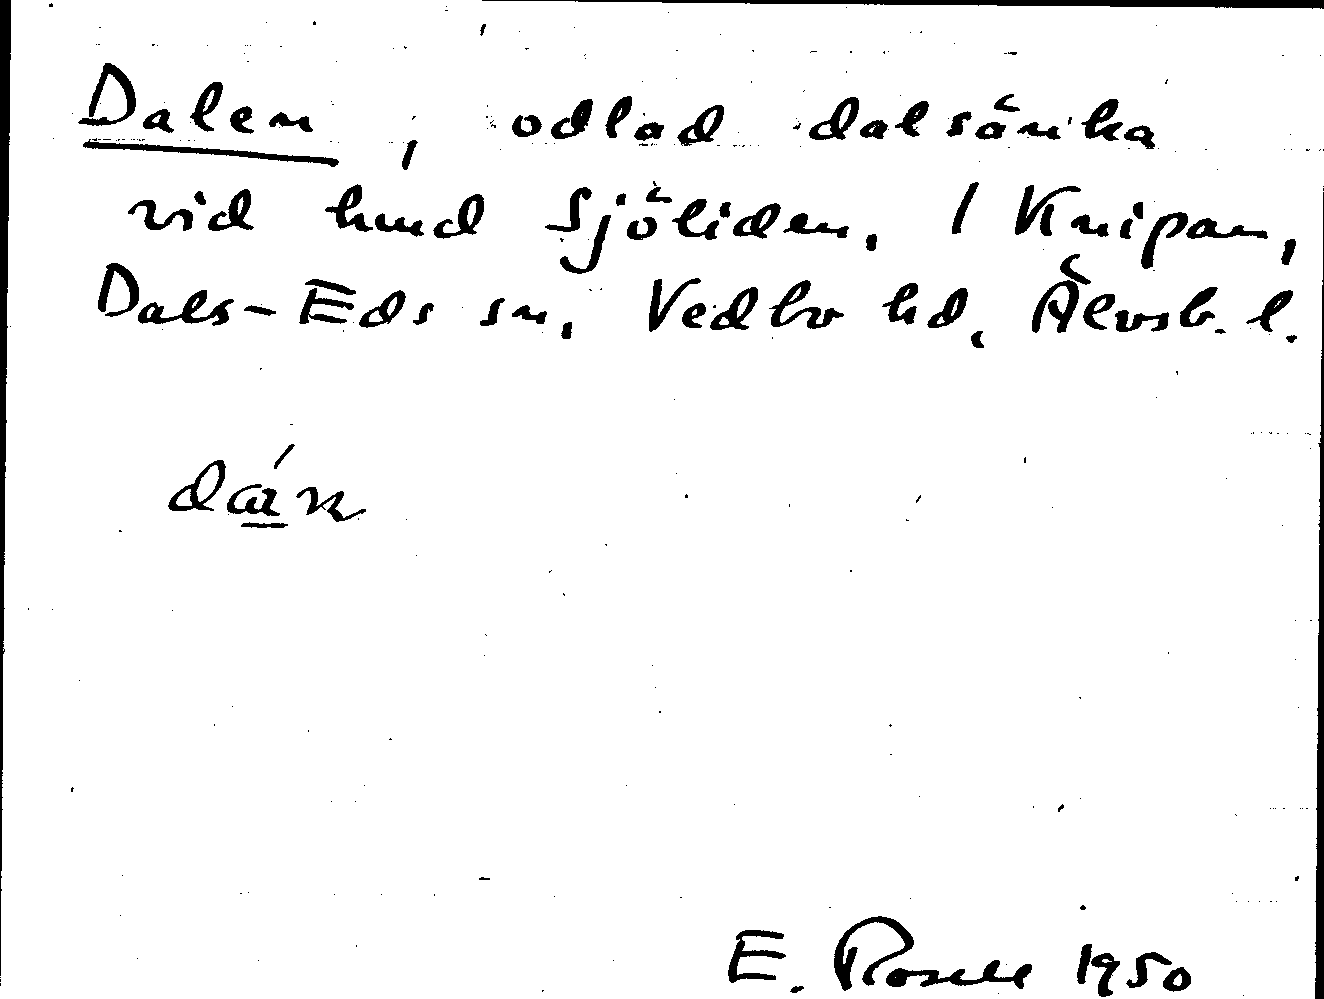 Dalen, odlad dalsänka
vid hmd Sjöliden, 1 Knipan,
Dals-Eds sn, Vedbo hd, Älvsb. l.
dán
E. Rosell 1950